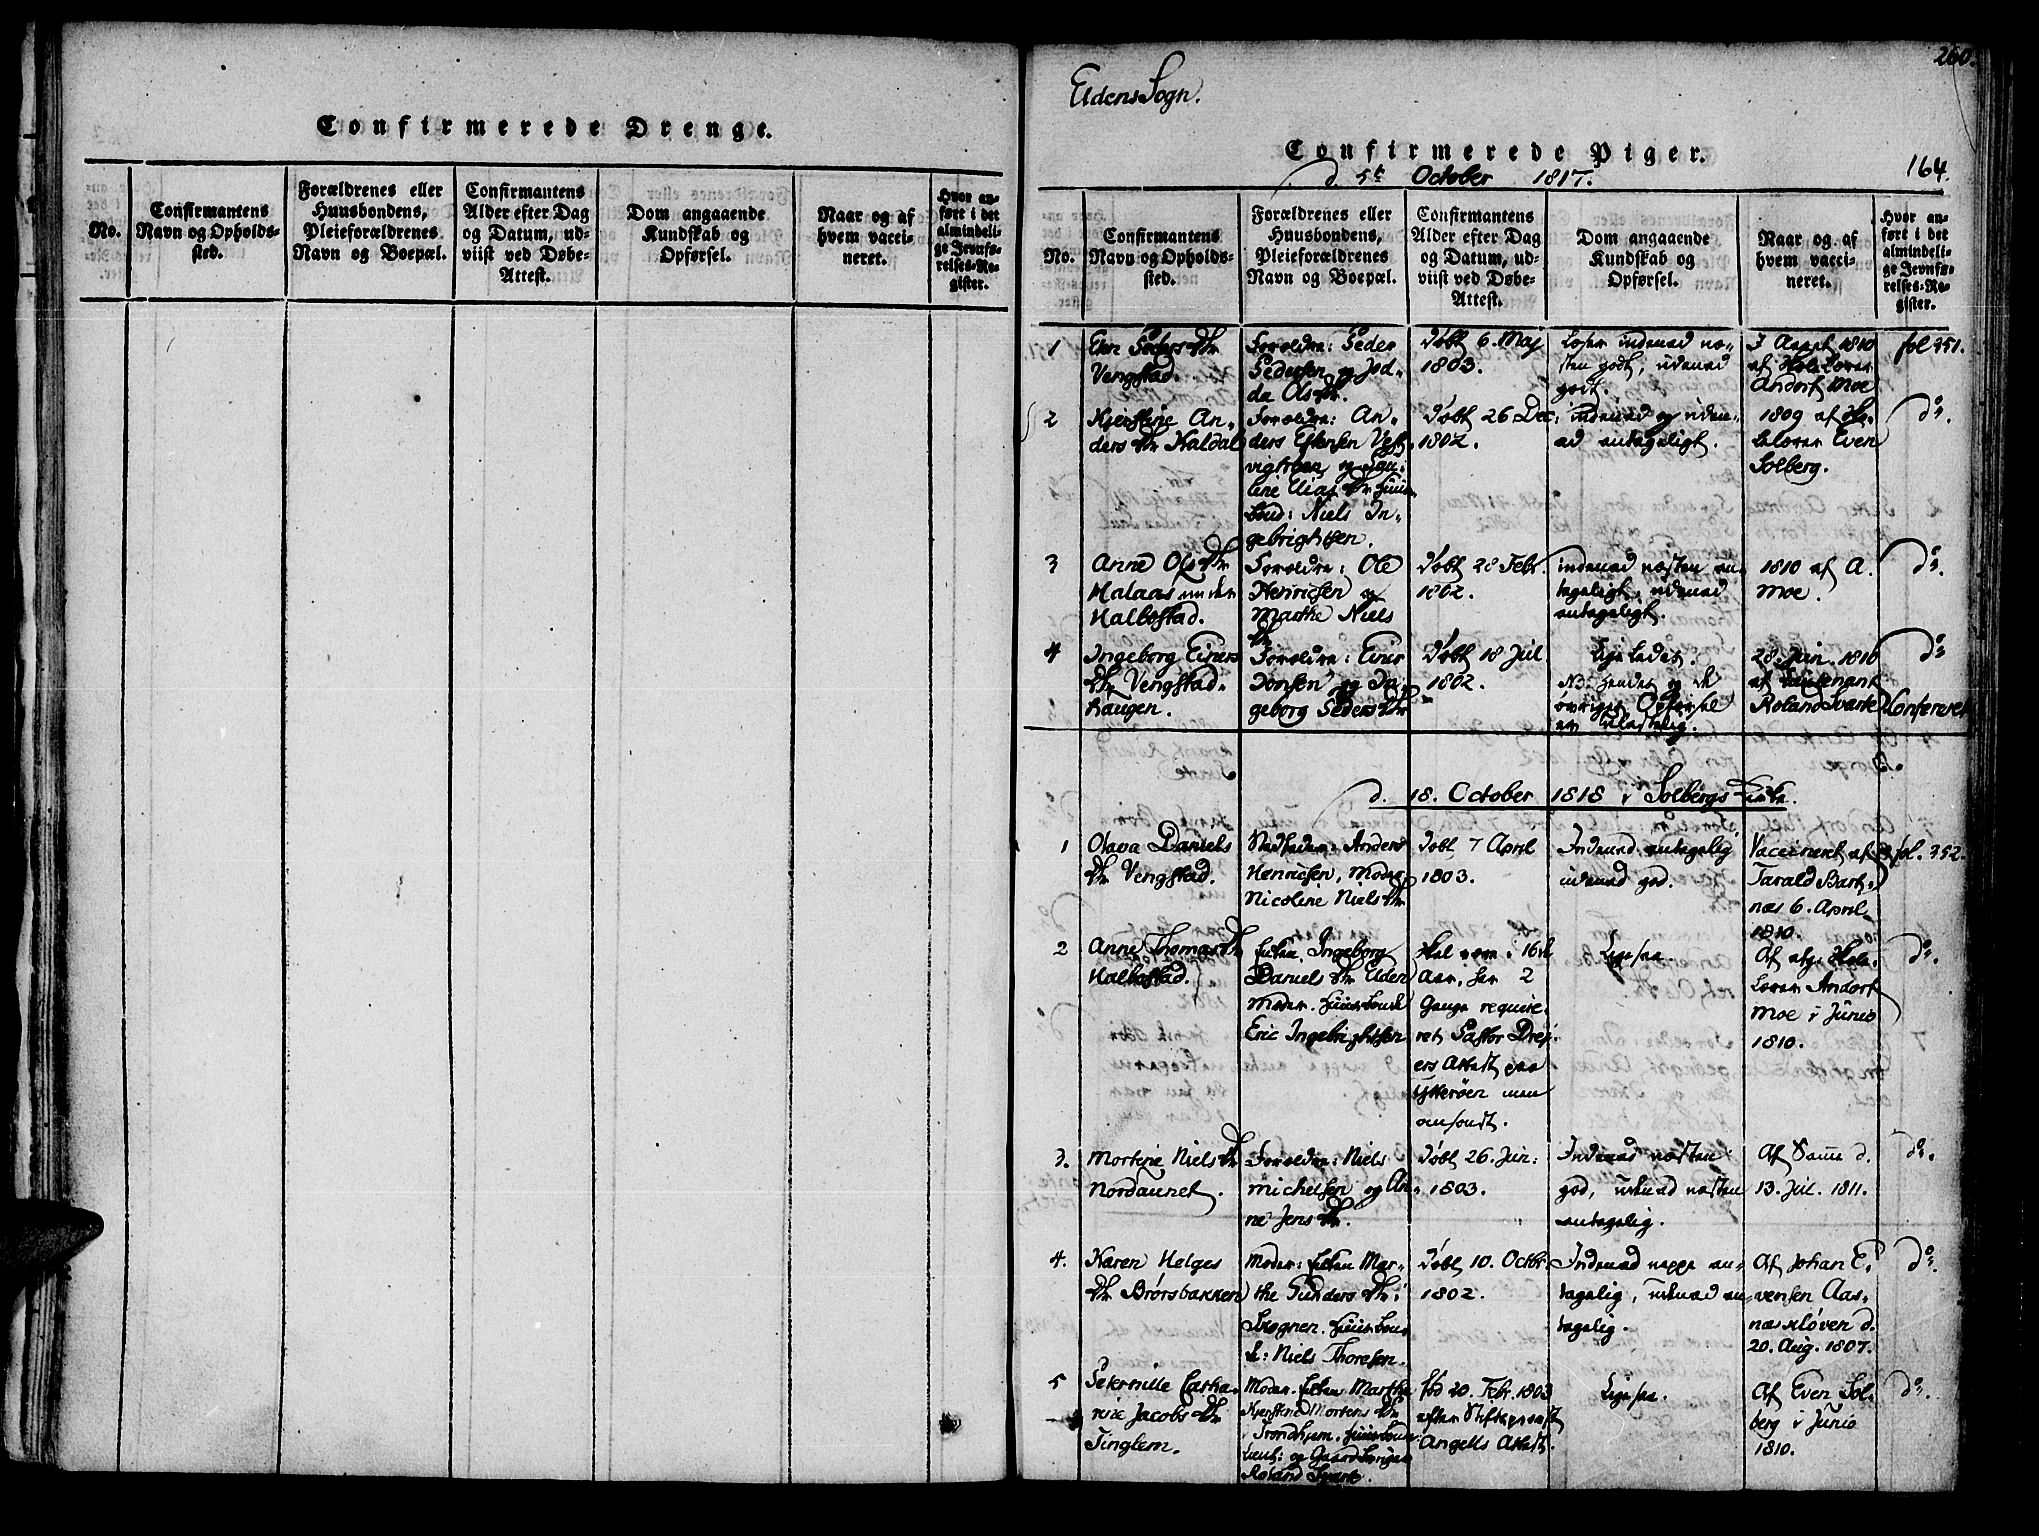 Confirmerede Drenge.
No.
Confirmantens
Navn og Opholds-
sted.
Forældrenes eller
Huusbondens,
Pleieforældrenes
Navn og Boepæl.
Confirmantens
Alder efter Dag
og Datum, ud-
viist ved Døbe-
Attest.
Dom angaaende
Kundskab og
Opførsel.
Naar og af
hvem vacci-
neret.
Hvor an-
ført i det
almindeli-
ge Jevnfø-
relses-Re-
gister.
260.
Eldens Sogn.
Confirmerede Piger.
164.
d. 5te October 1817.
No.
Confirmantens
Navn og Opholds-
sted.
Forældrenes eller
Huusbondens,
Pleieforældrenes
Navn og Boepæl.
Confirmantens
Alder efter Dag
og Datum, ud-
viist ved Døbe-
Attest.
Dom angaaende
Kundskab og
Opførsel.
Naar og af
hvem vacci-
neret.
Hvor an-
ført i det
almindeli-
ge Jevnfø-
relses-Re-
gister.
1
Peders Dtr
Vengstad.
Foreldre: Peder
Pedersen og
Ols Dtr.
Døbt 6. Maj
1803.
Læser indenad næ-
sten godt, udenad
godt.
3 August 1810
af
Andorf Moe
fol 351.
2
Kjerstine An-
ders Dtr Kaldal
Foreldre: An-
ders Estensen Vest
og Pau-
line Elias Dtr Huus-
bond: Niels In-
gebrigtsen.
Døbt 26 Dec:
1802.
indenad og uden-
ad antageligt.
1809 af Sko-
lelærer Even
Solberg.
do.
3
Anne Ols Dtr
Malaas under
Halbostad.
Foreldre: Ole
Henricsen og
Marthe Niels
Dtr
Døbt 28 Febr.
1802.
indenad næsten an-
tageligt, udenad
antageligt.
1810 af A.
Moe.
do.
4
Ingeborg Einers
Dtr Vengstad-
haugen.
Foreldre: Einer
Jonsen og In-
geborg Peders Dtr
Døbt 18 Jul
1802.
Ligeledes.
NB: og de
øvriges Opførsel
er ulastelig.
28 Jun. 1810
af Lieutenant
Roland Svarte
do
Confereret
d. 18. October 1818 i Solbergs Kirke.
1
Olava Daniels
Dtr Vengstad.
Stedfader: Anders
Henricsen, Moder
Nicoline Niels Dtr
Døbt 7 April
1803.
Indenad antagelig
udenad god.
Vaccineret af
Tarald Bart-
næs 6. April
1810.
fol. 352.
2
Anne Thomas Dtr
Halbostad.
Enken Ingeborg
Daniels Dtr Elden
Moder. Huusbonde
Eric Ingebrigtsen
Skal være i 16de
Aar, har 2
Gange require-
ret Pastor Drej-
ers Attest paa
Ytterøen men
omsonst.
Ligesaa.
Af afg. Skole-
lærer Andorf
Moe i Junio
1810.
do.
3.
Mortine Niels Dtr
Nordaunet.
Foreldre: Niels
Michelsen og An-
ne Jens Dtr.
Døbt 26. Jun:
1803.
Indenad næsten
god, udenad næsten
antagelig.
Af Samme d.
13. Jul. 1811.
do.
4.
Karen Helges
Dtr Brørsbakken
Moder: Enken Mar-
the Gunders Dtr:
Huusbon-
de: Niels Thoresen.
Døbt 10. Octbr.
1802.
Indenad neppe an-
tagelig, udenad an-
tagelig.
Af Johan E-
vensen Aas-
næskløven d.
20. Aug. 1807.
do.
5
Peternille Catha-
rine Jacobs Dtr
Tinglem.
Moder. Enken Marthe
Kjerstine Mortens Dtr
i Trondhjem. Huusbond:
Lieut: og
Roland Svarte.
fød 20. Febr. 1803
efter Stiftsprovst
Angells Attest.
Ligesaa.
Af Even Sol-
berg i Junio
1810.
do.